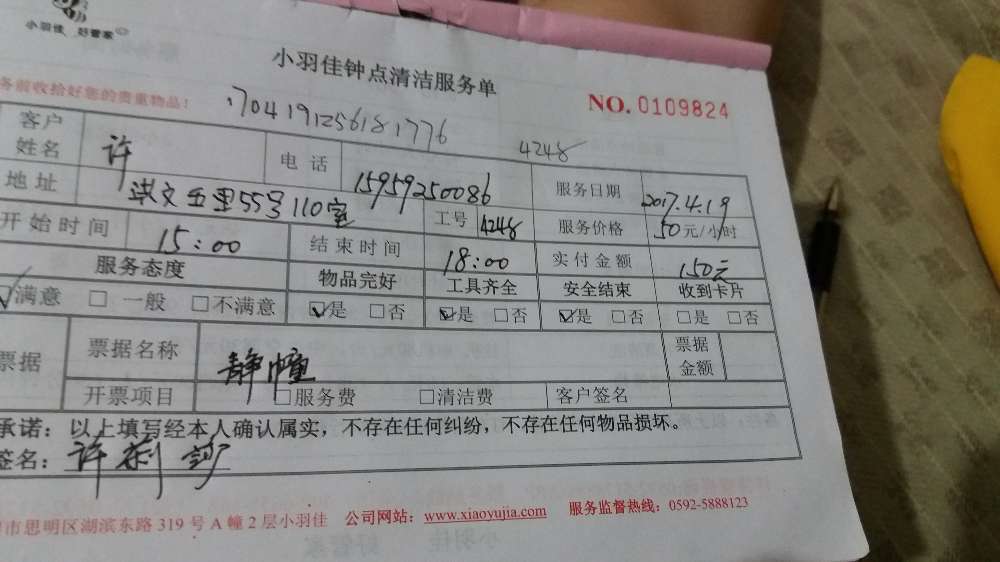 小羽佳 好管家
小羽佳钟点清洁服务单
务前收拾好您的贵重物品！
NO. 0109824
1704191256181776 4248
客户姓名 许 电话 15959250086 服务日期 2017.4.19
地址 洪文五里55号110室 工号 4248 服务价格 50元/小时
开始时间 15:00 结束时间 18:00 实付金额 150元
服务态度 物品完好 工具齐全 安全结束 收到卡片
☑满意 □一般 □不满意 ☑是 □否 ☑是 □否 ☑是 □否 □是 □否
票据 票据名称 票据金额
开票项目 □服务费 □清洁费 客户签名
承诺：以上填写经本人确认属实，不存在任何纠纷，不存在任何物品损坏。
签名：许莉
市思明区湖滨东路 319 号 A 幢 2 层小羽佳 公司网站：www.xiaoyujia.com 服务监督热线：0592-5888123